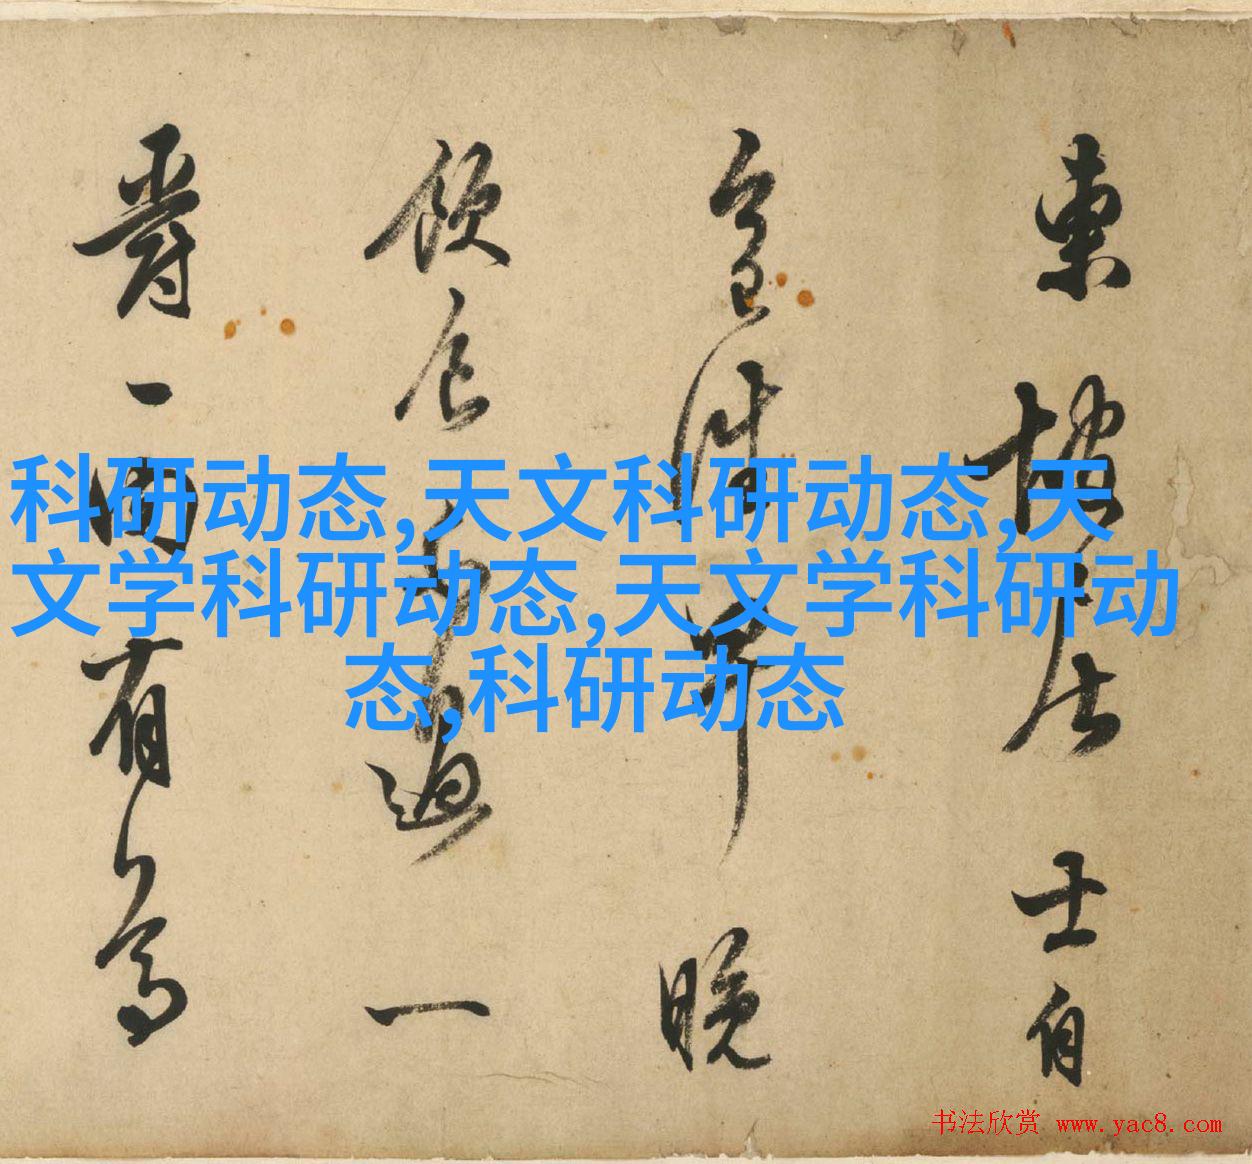 東坡居士自
今日往早晚
飲食不過一
爵一肉有
科研动态,天文科研动态,天
文学科研动态,天文学科研动
态,科研动态
书法欣赏 www.yac8.com